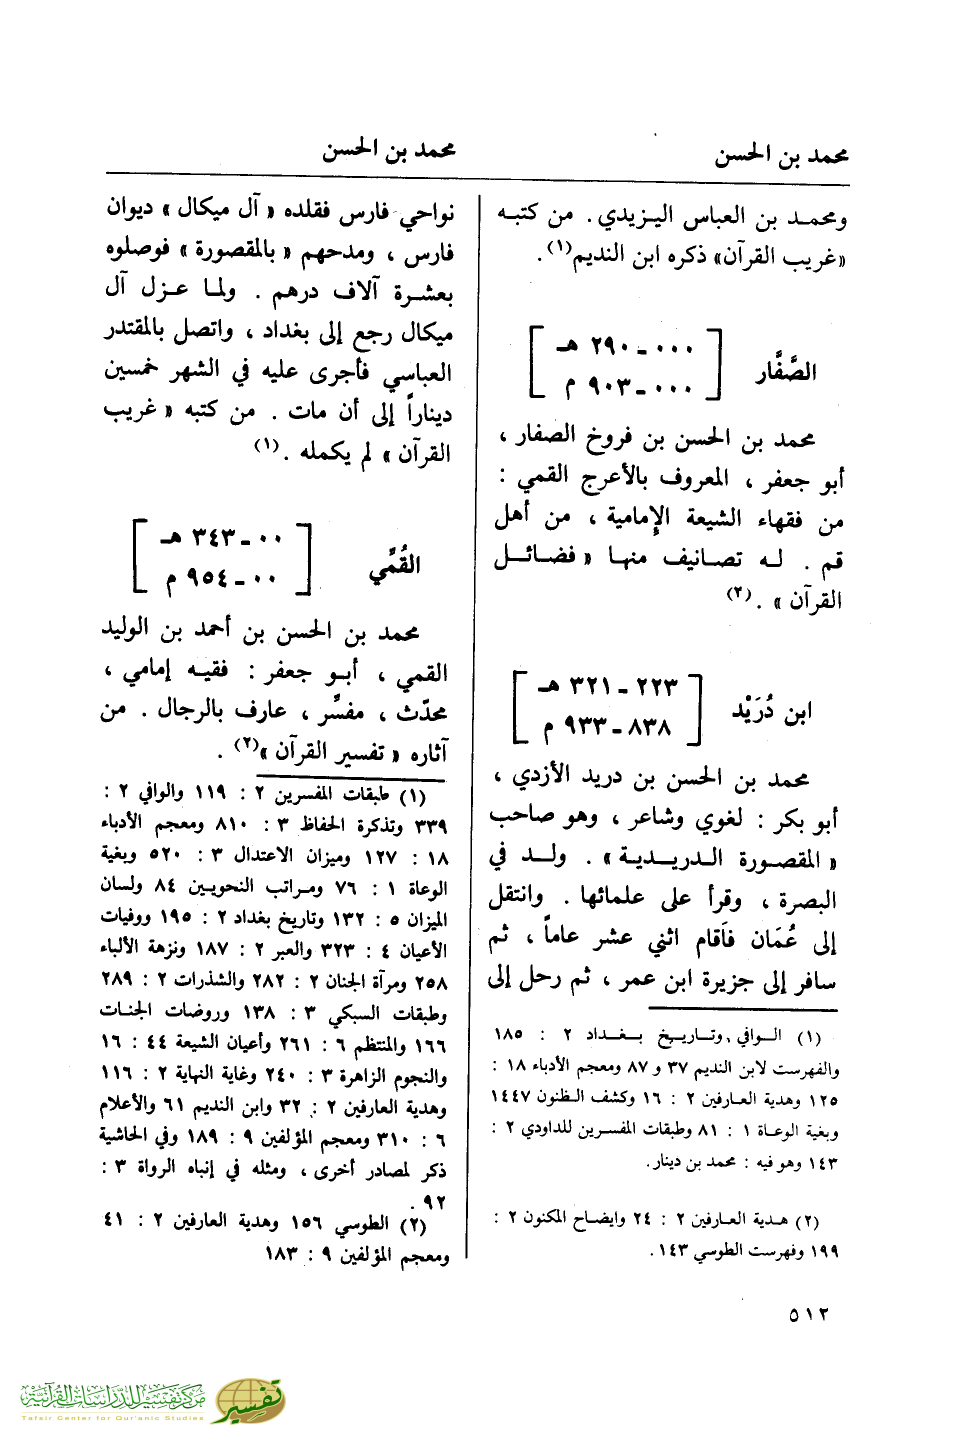 محمد بن الحسن
محمد بن الحسن
ومحمد بن العباس اليزيدي. من كتبه
«غريب القرآن» ذكره ابن النديم(١).
الصَّفَّار
٠٠٠ - ٢٩٠ هـ
٠٠٠ - ٩٠٣ م
محمد بن الحسن بن فروخ الصفار ،
أبو جعفر ، المعروف بالأعرج القمي :
من فقهاء الشيعة الإمامية ، من أهل
قم . له تصانيف منها « فضائل
القرآن » .(٢)
ابن دُرَيْد
٢٢٣ - ٣٢١ هـ
٨٣٨ - ٩٣٣ م
محمد بن الحسن بن دريد الأزدي ،
أبو بكر : لغوي وشاعر ، وهو صاحب
« المقصورة الدريدية » . ولد في
البصرة ، وقرأ على علمائها . وانتقل
إلى عُمَان فأقام اثني عشر عاماً ، ثم
سافر إلى جزيرة ابن عمر ، ثم رحل إلى
(١) الوافي وتاريخ بغداد ٢ : ١٨٥
والفهرست لابن النديم ٣٧ و ٨٧ ومعجم الأدباء ١٨ :
١٢٥ وهدية العارفين ٢ : ١٦ وكشف الظنون ١٤٤٧
وبغية الوعاة ١ : ٨١ وطبقات المفسرين للداودي ٢ :
١٤٣ وهو فيه : محمد بن دينار.
(٢) هدية العارفين ٢ : ٢٤ وايضاح المكنون ٢ :
١٩٩ وفهرست الطوسي ١٤٣.
نواحي فارس فقلده « آل ميكال » ديوان
فارس ، ومدحهم « بالمقصورة » فوصلوه
بعشرة آلاف درهم . ولما عزل آل
ميكال رجع إلى بغداد ، واتصل بالمقتدر
العباسي فأجرى عليه في الشهر خمسين
ديناراً إلى أن مات . من كتبه « غريب
القرآن » لم يكمله .(١)
القُمِّي
٠٠ - ٣٤٣ هـ
٠٠ - ٩٥٤ م
محمد بن الحسن بن أحمد بن الوليد
القمي ، أبو جعفر : فقيه إمامي ،
محدّث ، مفسِّر ، عارف بالرجال . من
آثاره « تفسير القرآن »(٢) .
(١) طبقات المفسرين ٢ : ١١٩ والوافي ٢ :
٣٣٩ وتذكرة الحفاظ ٣ : ٨١٠ ومعجم الأدباء
١٨ : ١٢٧ وميزان الاعتدال ٣ : ٥٢٠ وبغية
الوعاة ١ : ٧٦ ومراتب النحويين ٨٤ ولسان
الميزان ٥ : ١٣٢ وتاريخ بغداد ٢ : ١٩٥ ووفيات
الأعيان ٤ : ٣٢٣ والعبر ٢ : ١٨٧ ونزهة الألباء
٢٥٨ ومرآة الجنان ٢ : ٢٨٢ والشذرات ٢ : ٢٨٩
وطبقات السبكي ٣ : ١٣٨ وروضات الجنات
١٦٦ والمنتظم ٦ : ٢٦١ وأعيان الشيعة ٤٤ : ١٦
والنجوم الزاهرة ٣ : ٢٤٠ وغاية النهاية ٢ : ١١٦
وهدية العارفين ٢ : ٣٢ وابن النديم ٦١ والأعلام
٦ : ٣١٠ ومعجم المؤلفين ٩ : ١٨٩ وفي الحاشية
ذكر لمصادر أخرى ، ومثله في إنباه الرواة ٣ :
٩٢ .
(٢) الطوسي ١٥٦ وهدية العارفين ٢ : ٤١
ومعجم المؤلفين ٩ : ١٨٣
٥١٢
مركز تفسير للدراسات القرآنية
Tafsir Center for Qur'anic Studies
تفسير